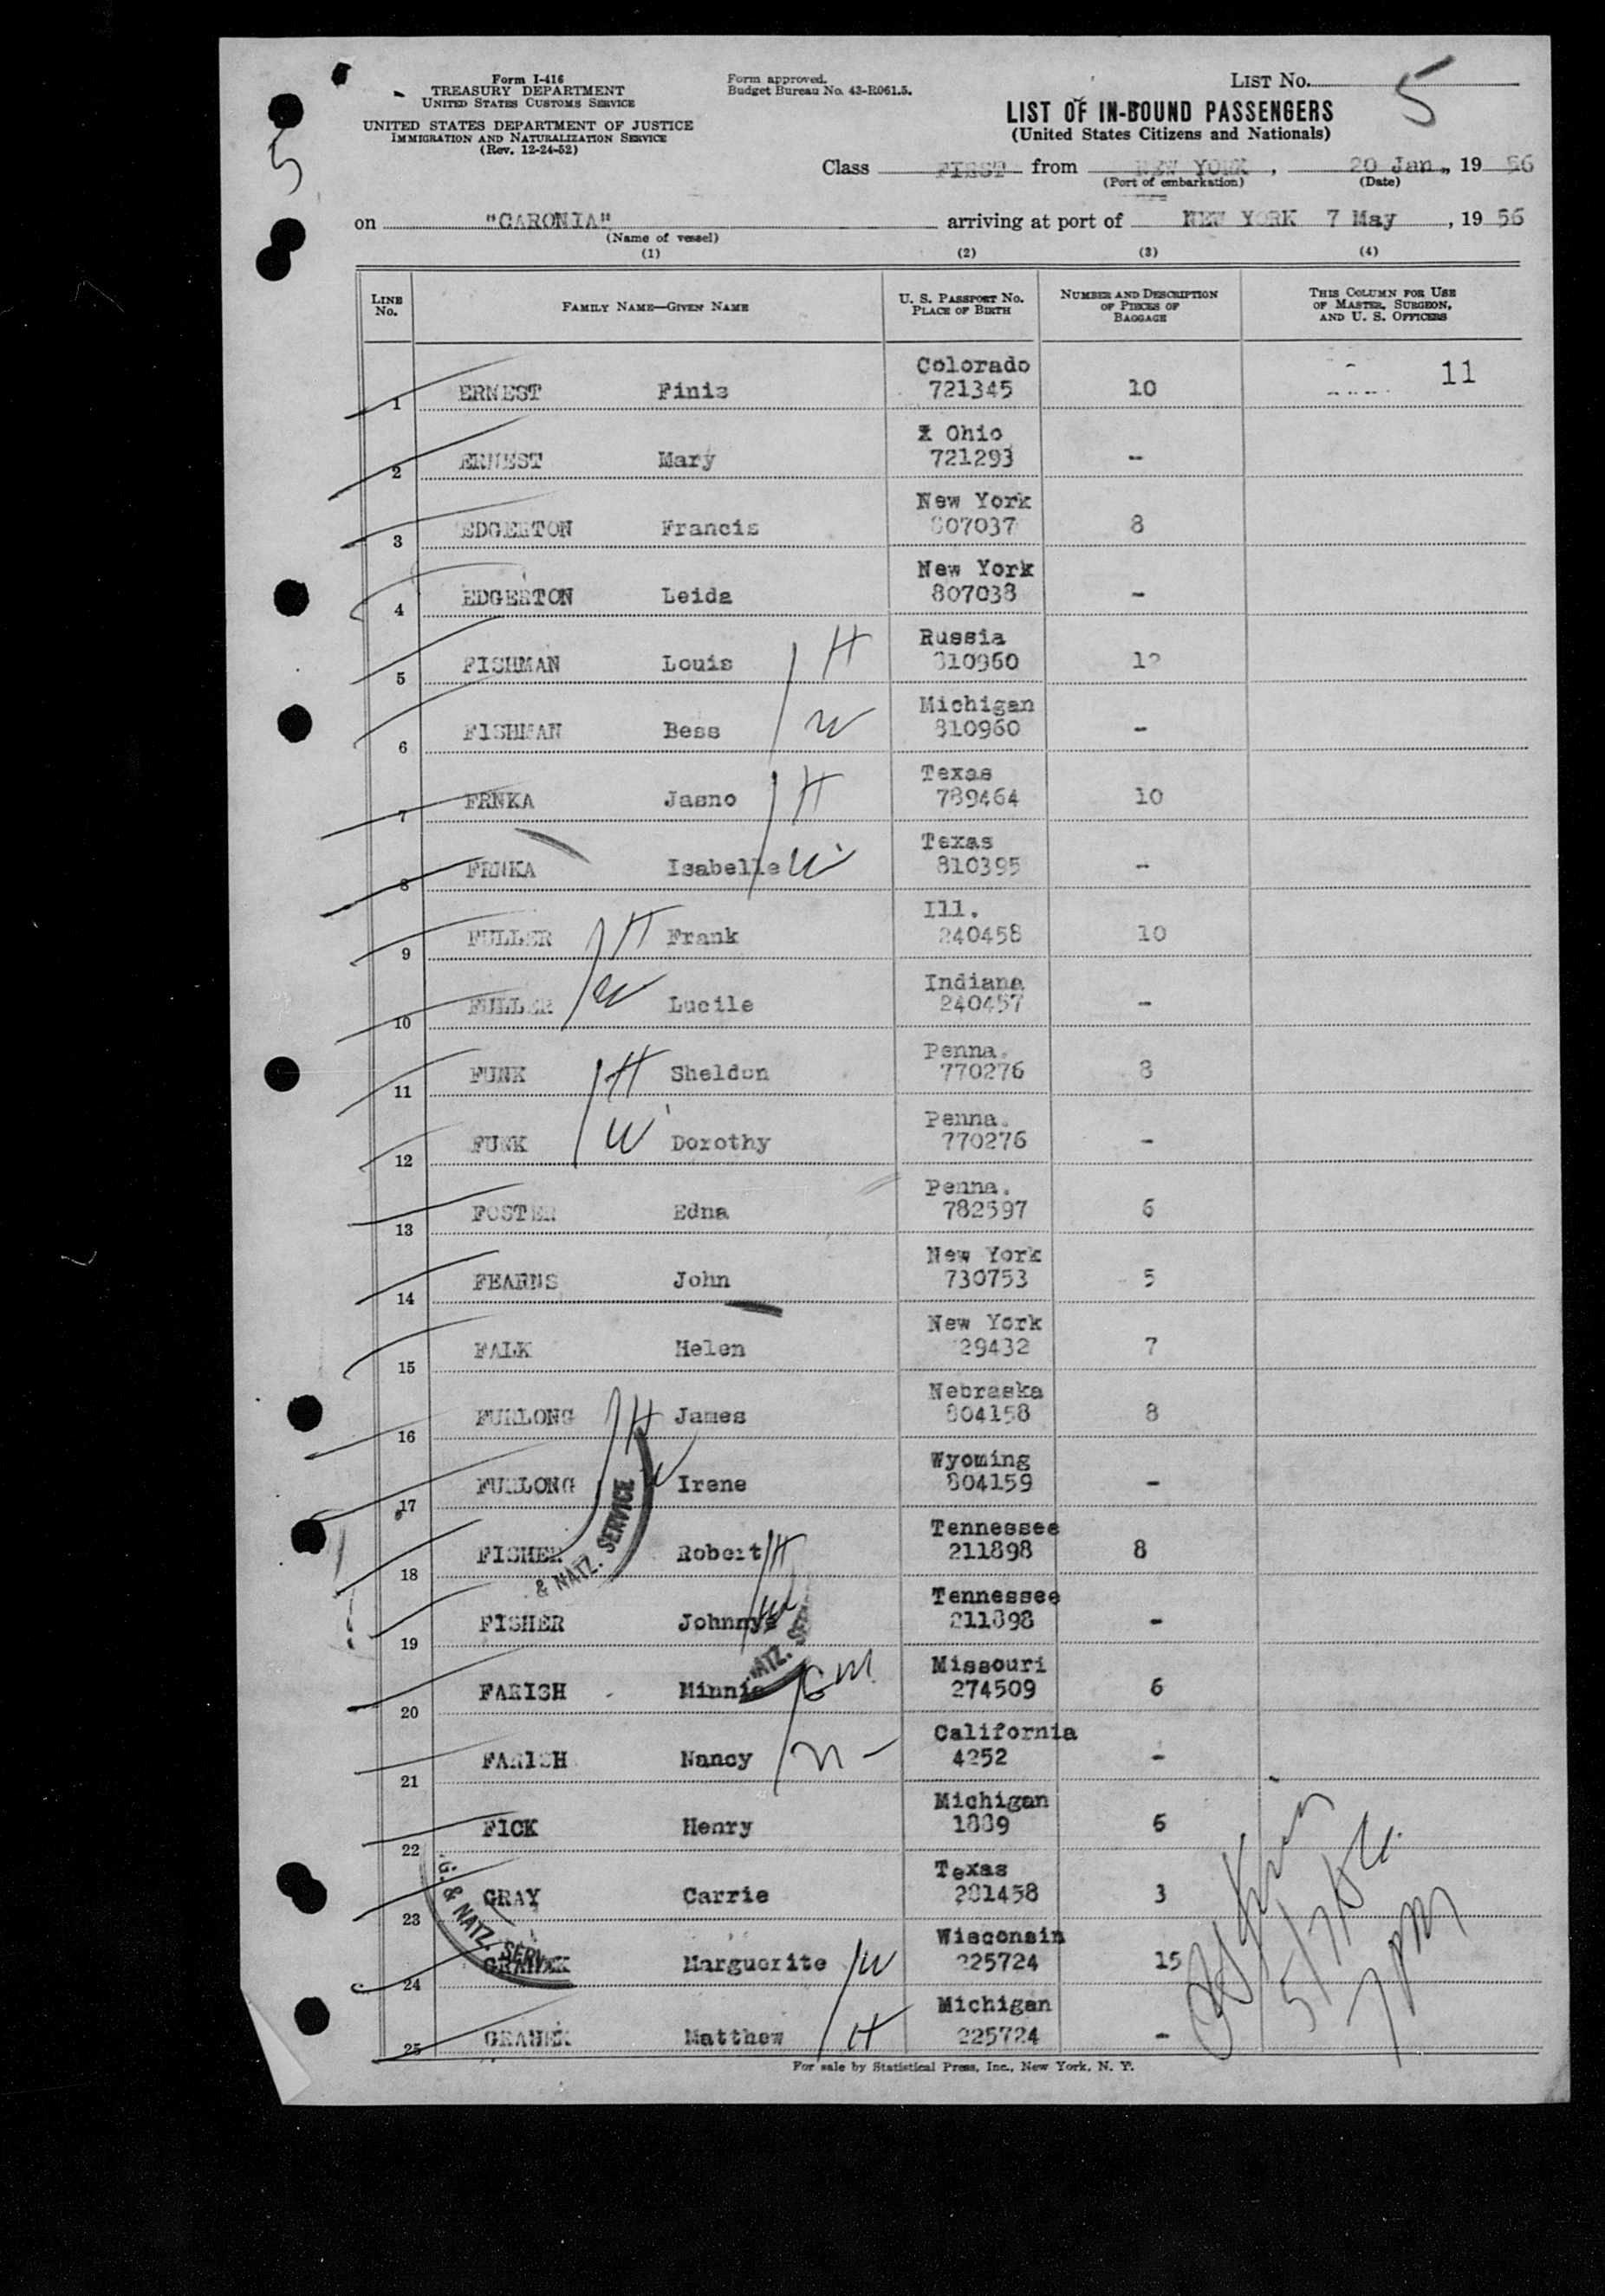 Form I-416
TREASURY DEPARTMENT
UNITED STATES CUSTOMS SERVICE
UNITED STATES DEPARTMENT OF JUSTICE
IMMIGRATION AND NATURALIZATION SERVICE
(Rev. 12-24-52)
Form approved.
Budget Bureau No. 43-R061.5.
LIST No. 5
LIST OF IN-BOUND PASSENGERS
(United States Citizens and Nationals)
5
Class FIRST from NEW YORK, 20 Jan., 19 56
(Port of embarkation) (Date)
on "CARONIA" arriving at port of NEW YORK 7 May, 19 56
(Name of vessel)
(1) (2) (3) (4)
LINE No. FAMILY NAME—GIVEN NAME U. S. PASSPORT No. PLACE OF BIRTH NUMBER AND DESCRIPTION OF PIECES OF BAGGAGE THIS COLUMN FOR USE OF MASTER, SURGEON, AND U. S. OFFICERS
Colorado
1 ERNEST Finis 721345 10 11
X Ohio
2 ERNEST Mary 721293 -
New York
3 EDGERTON Francis 807037 8
New York
4 EDGERTON Leida 807038 -
Russia
5 FISHMAN Louis H 810960
Michigan
6 FISHMAN Bess W 810960 -
Texas
7 FRNKA Jasno H 789464 10
Texas
8 FRNKA Isabelle W 810395 -
Ill.
9 FULLER H Frank 240458 10
Indiana
10 FULLER W Lucile 240457 -
Penna.
11 FUNK H Sheldon 770276 8
Penna.
12 FUNK W Dorothy 770276 -
Penna.
13 FOSTER Edna 782597 6
New York
14 FEARNS John 730753 5
New York
15 FALK Helen 29432 7
Nebraska
16 FURLONG H James 804158 8
Wyoming
17 FURLONG W Irene 804159 -
Tennessee
18 FISHER Robert H 211898 8
& NATZ. SERVICE
Tennessee
19 FISHER Johnnye W 211898 -
NATZ. SE
Missouri
20 FARISH Minnie GM 274509 6
California
21 FARISH Nancy N - 4252 -
Michigan
22 FICK Henry 1889 6
Texas
23 GRAY Carrie 281458 3
G. & NATZ. SERV
Wisconsin
24 GRAHEK Marguerite W 225724 15
Michigan
25 GRAHEK Matthew H 225724 -
5/7/56
7 PM
For sale by Statistical Press, Inc., New York, N. Y.